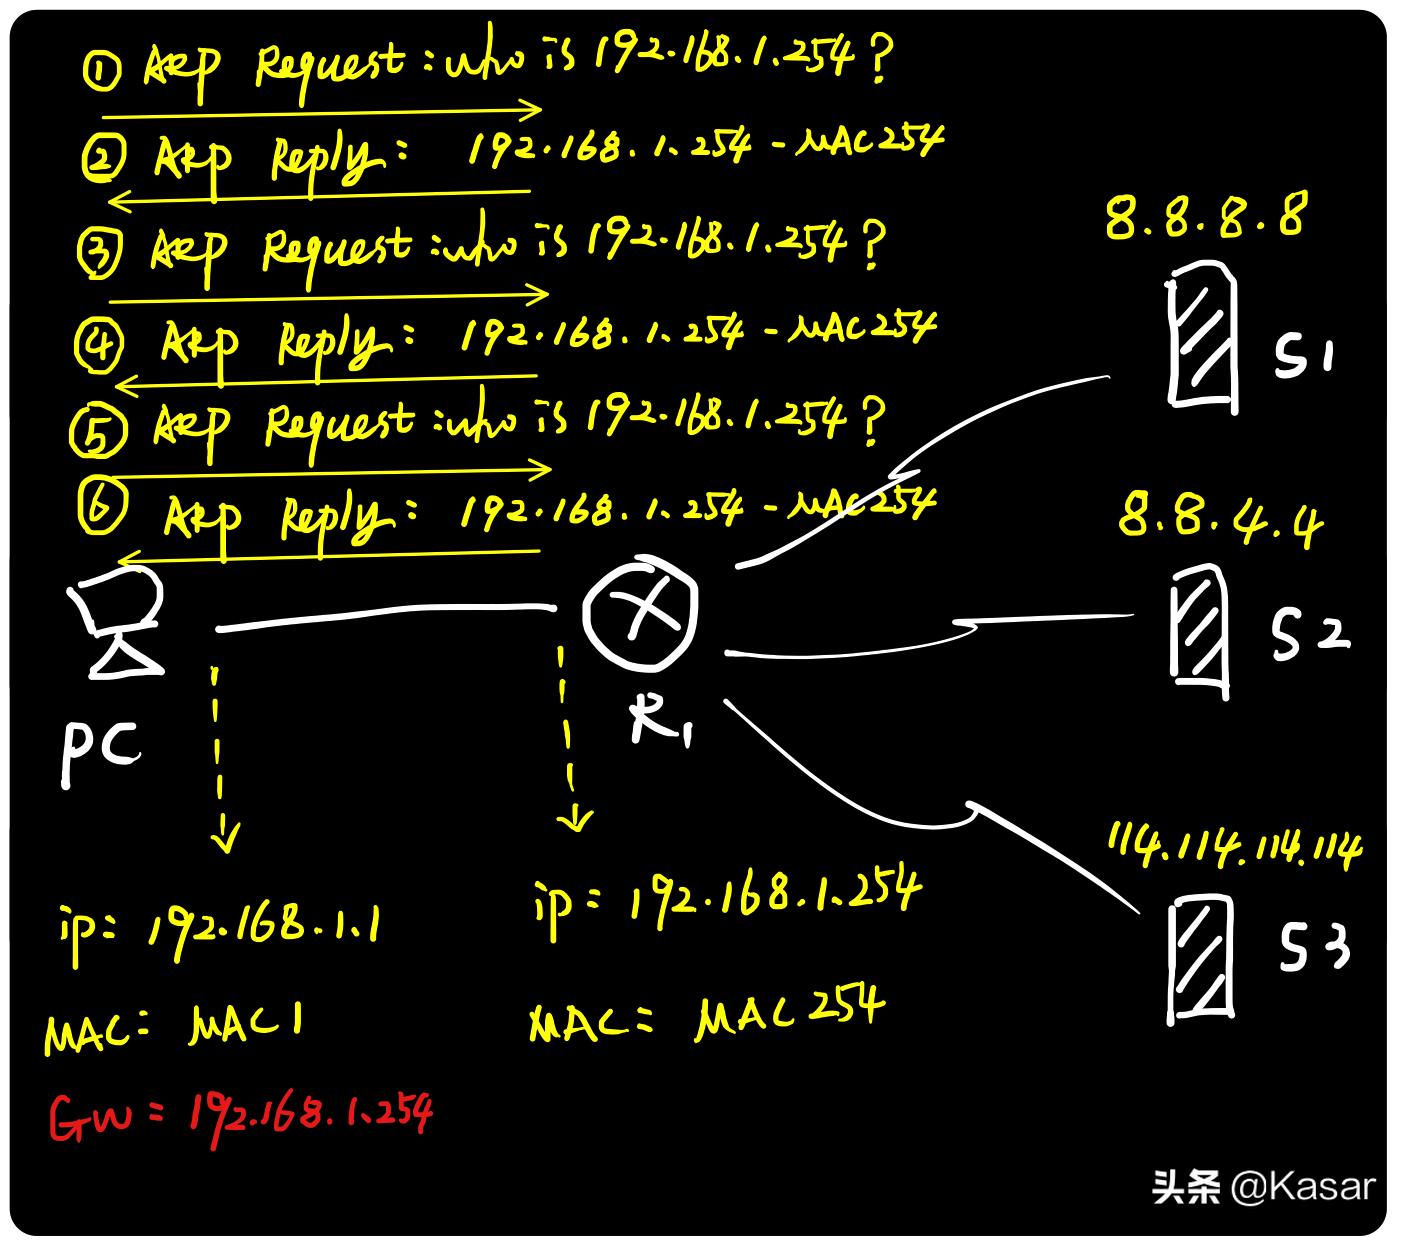 ① ARP Request: who is 192.168.1.254?
② ARP Reply: 192.168.1.254 - MAC254
③ ARP Request: who is 192.168.1.254?
④ ARP Reply: 192.168.1.254 - MAC254
⑤ ARP Request: who is 192.168.1.254?
⑥ ARP Reply: 192.168.1.254 - MAC254
8.8.8.8
S1
8.8.4.4
S2
PC
R1
114.114.114.114
S3
ip= 192.168.1.1
MAC= MAC1
GW = 192.168.1.254
ip= 192.168.1.254
MAC= MAC254
头条 @Kasar